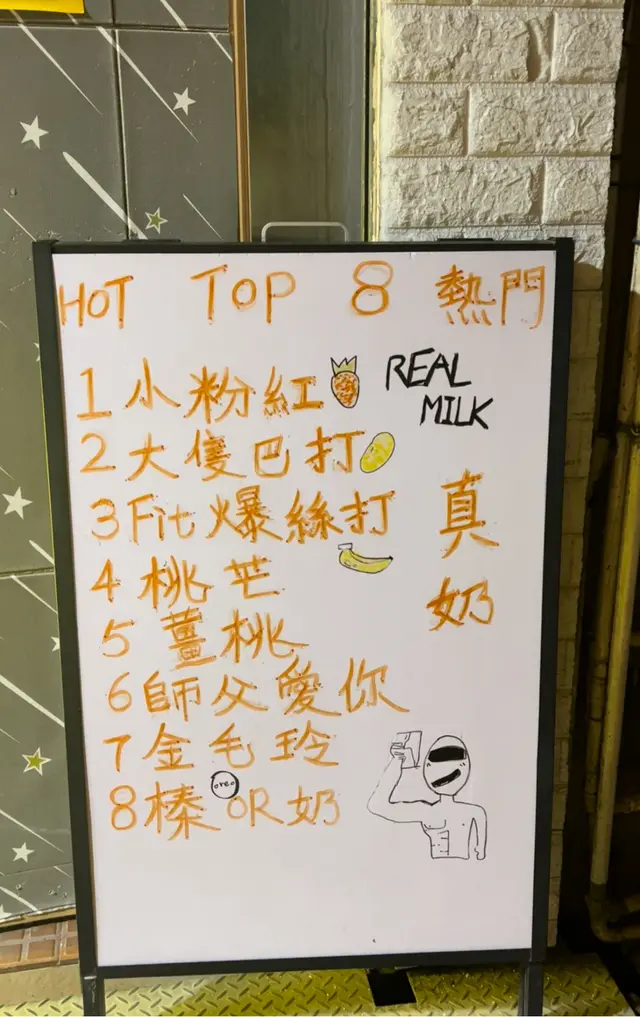 HOT TOP 8 熱門
1 小粉紅
REAL
MILK
2 大隻巴打
3 Fit 爆絲打
真
奶
4 桃芒
5 薑桃
6 師父愛你
7 金毛玲
8 榛 oreo OR奶